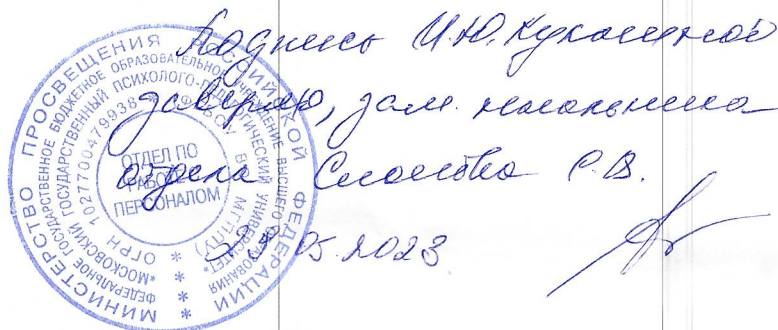 Подпись И.Ю. Кулагиной
заверяю, зам. начальника
отдела С.В.
05.2023
МИНИСТЕРСТВО ПРОСВЕЩЕНИЯ РОССИЙСКОЙ ФЕДЕРАЦИИ
ФЕДЕРАЛЬНОЕ ГОСУДАРСТВЕННОЕ БЮДЖЕТНОЕ ОБРАЗОВАТЕЛЬНОЕ УЧРЕЖДЕНИЕ ВЫСШЕГО ОБРАЗОВАНИЯ
"МОСКОВСКИЙ ГОСУДАРСТВЕННЫЙ ПСИХОЛОГО-ПЕДАГОГИЧЕСКИЙ УНИВЕРСИТЕТ"
ОГРН 1027700479938 МГППУ)
ОТДЕЛ ПО
РАБОТЕ С
ПЕРСОНАЛОМ